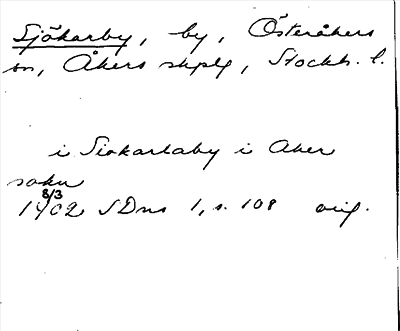 Sjökarby, by, Österåkers
sn, Åkers skplg, Stockh. l.
i Siokarlaby i Aker
sokn
8/3
1402 SDns 1, s. 108 orig.